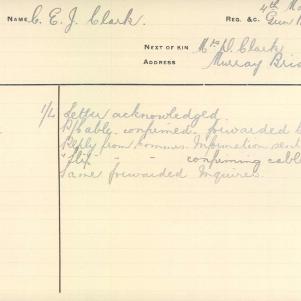 NAME C. E. J. Clark. REG. &C. 4th Ma
Gun
NEXT OF KIN Mrs D. Clark
ADDRESS Murray Brid
1/L Letter acknowledged.
confirmed, forwarded
Reply from Commrs. Information sent
" - - confirming cable
Same forwarded Inquires.